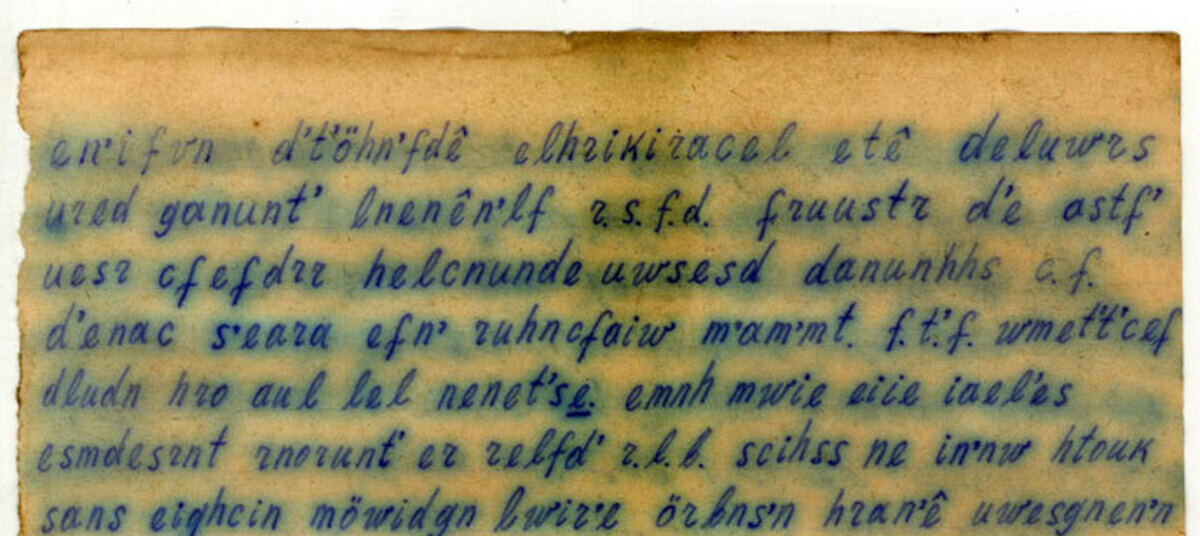 en'i fvn d't'öhn'fdê elhrikiracel etê deluwrs
ured ganunt' lnenên'lf r.s.f.d. fruustr d'e astf'
uesr cfefdrr helcnunde uwsesd danunhhs c.f.
d'enac s'eara efn' ruhncfaiw m'am'mt. f.t'.f. wmet't'cef
dludn hro aul lel nenet'se. emnh mwie eiie iael'es
esmdesrnt rnorunt' er relfd' r.l.b. scihss ne in'nw htouk
sans eighcin möwidgn lwir'e örbns'n hran'ê uwesgnen'n